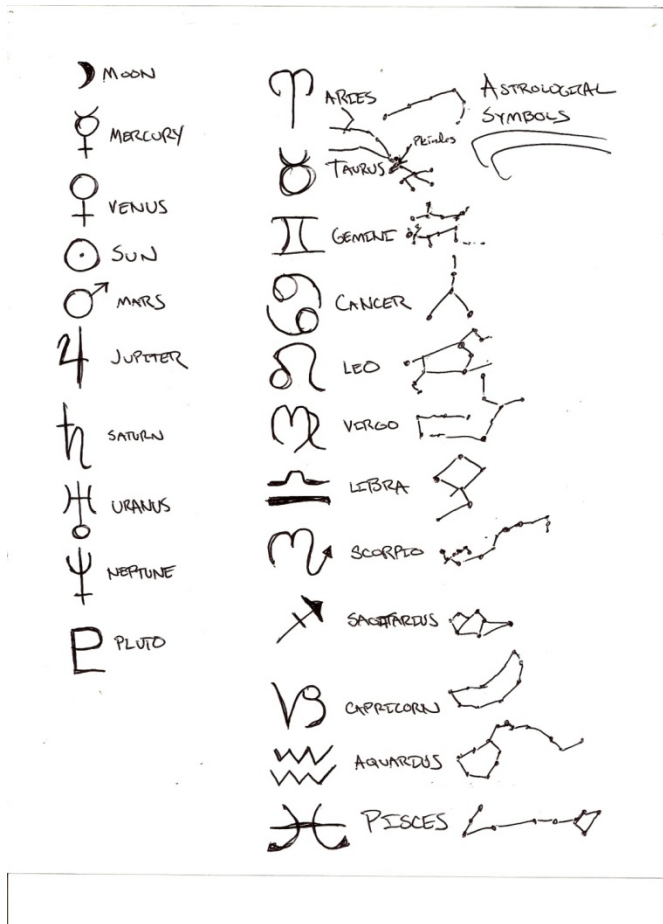 MOON
MERCURY
VENUS
SUN
MARS
JUPITER
SATURN
URANUS
NEPTUNE
PLUTO
ASTROLOGICAL
SYMBOLS
ARIES
Pleiades
TAURUS
GEMINI
CANCER
LEO
VIRGO
LIBRA
SCORPIO
SAGITTARIUS
CAPRICORN
AQUARIUS
PISCES